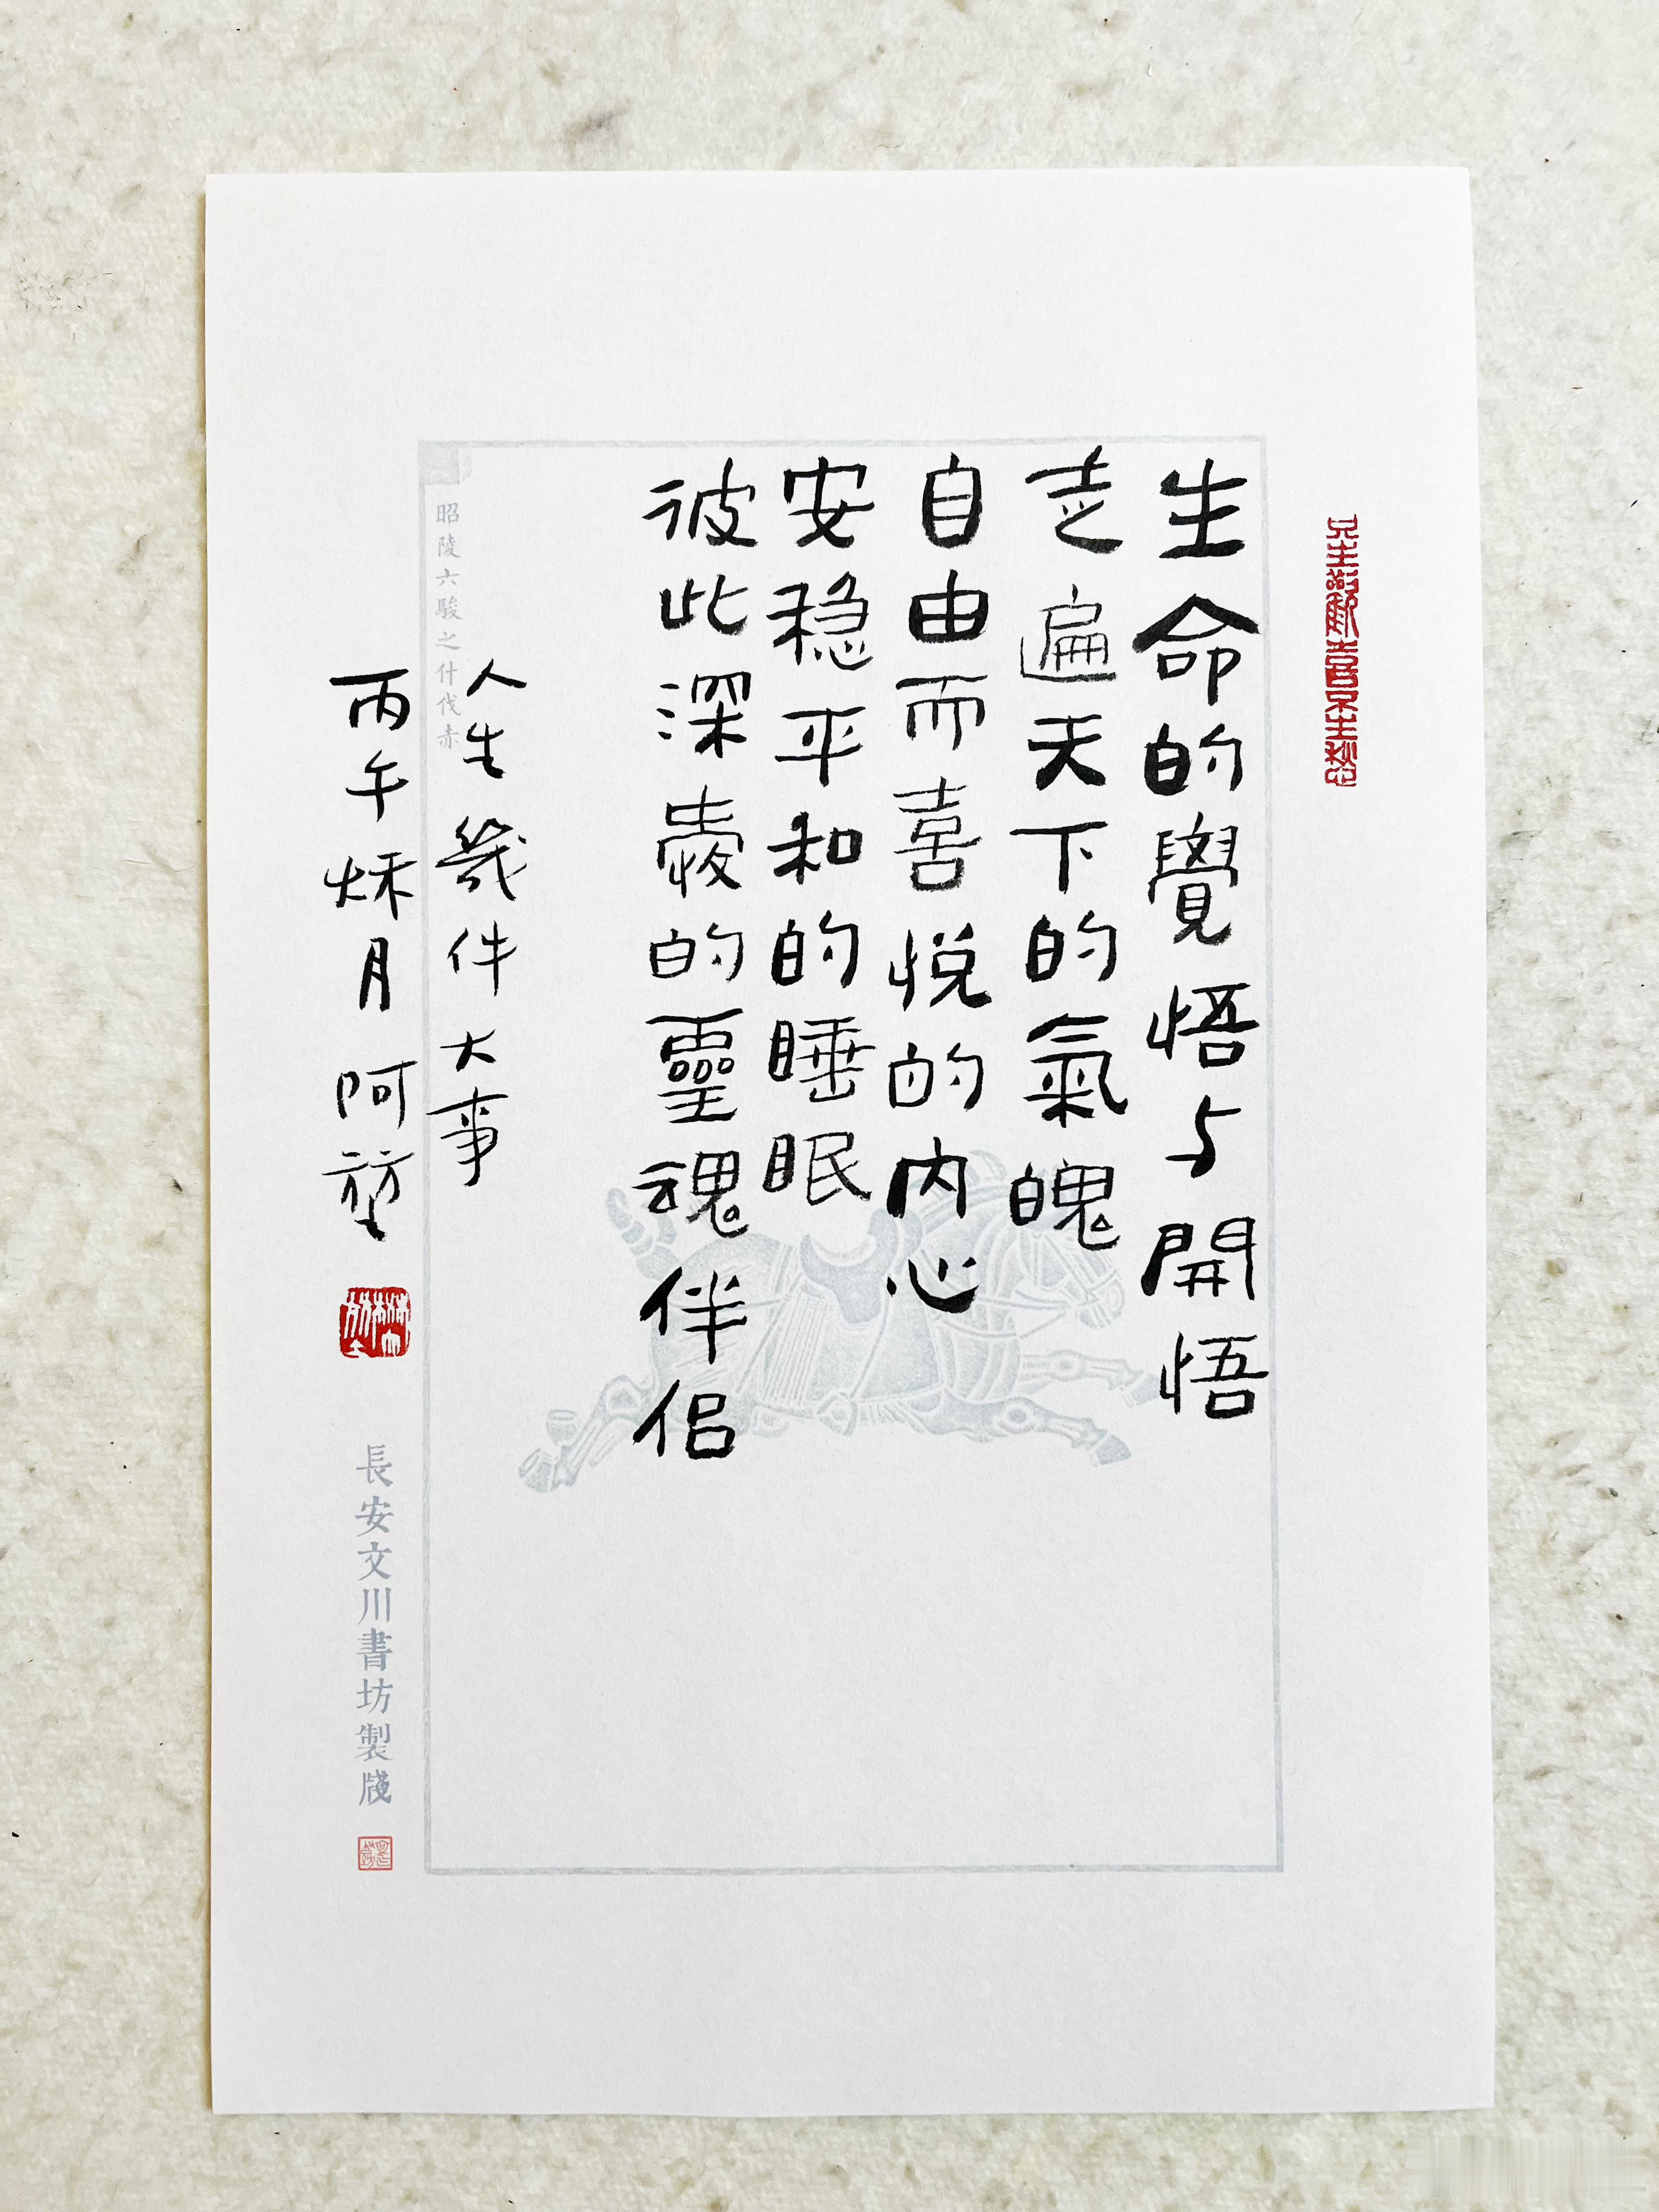 只生歡喜不生愁
生命的覺悟与開悟
走遍天下的氣魄
自由而喜悅的内心
安稳平和的睡眠
彼此深愛的靈魂伴侣
昭陵六駿之什伐赤
人生幾件大事
丙午秌月 阿堃
長安文川書坊製牋